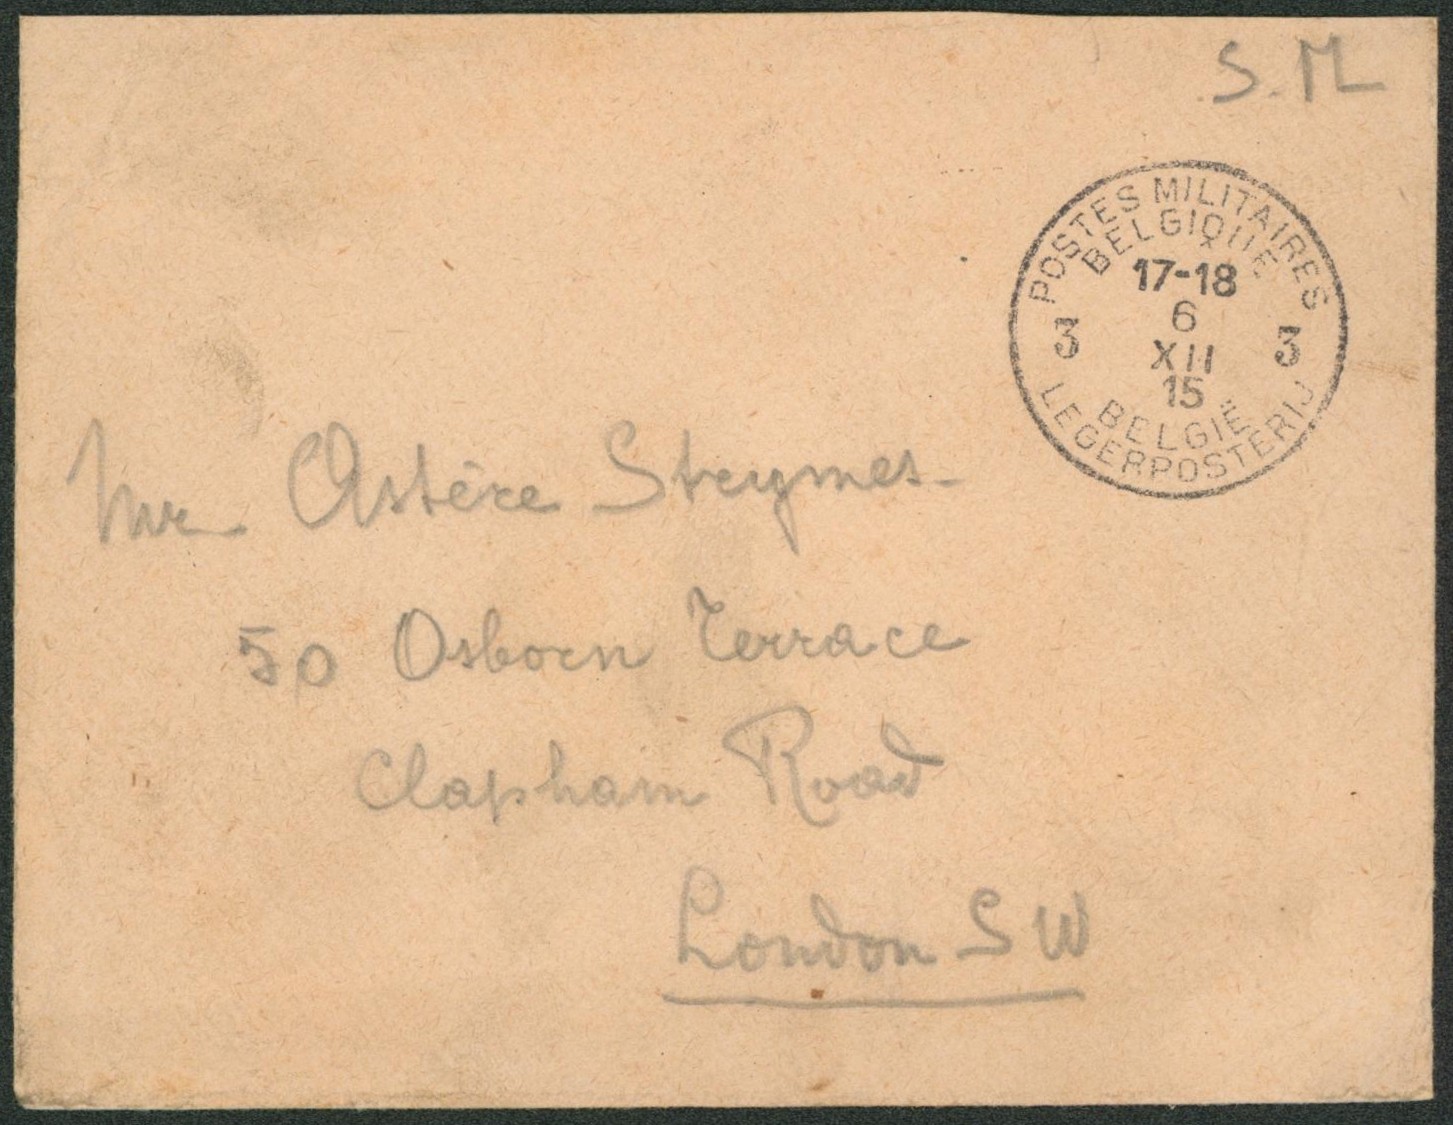 S.M
POSTES MILITAIRES
BELGIQUE
17-18
6
XII
15
3 3
BELGIË
LEGERPOSTERIJ
Mr Astère
50 Osborn Terrace
Clapham Road
London S W